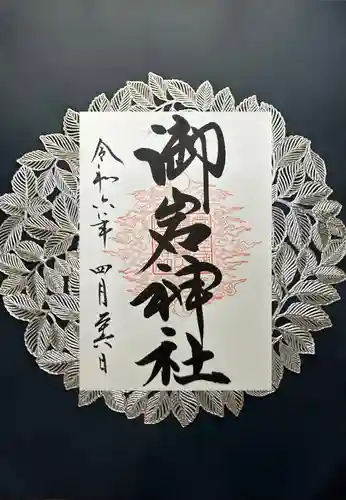 御岩神社
令和六年 四月廿八日